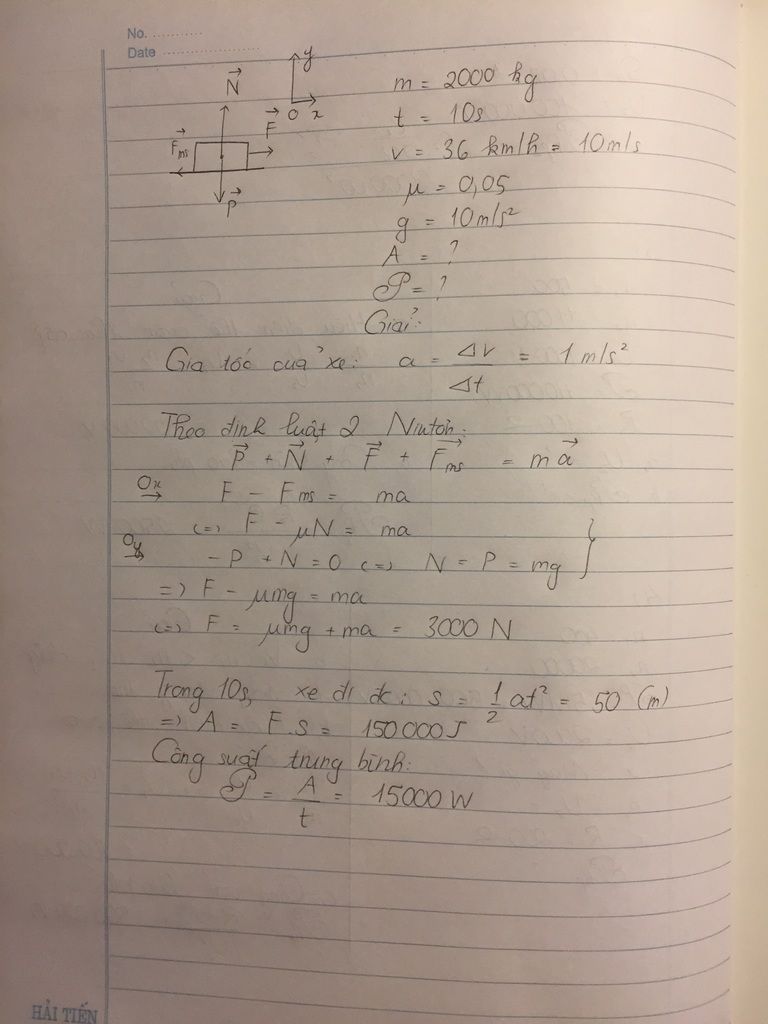 No. ............
Date ........................
y
N⃗
O x
F⃗
F⃗ms
P⃗
m = 2000 kg
t = 10s
v = 36 km/h = 10m/s
μ = 0,05
g = 10m/s²
A = ?
𝒫 = ?
Giải:
Gia tốc của xe: a = Δv/Δt = 1 m/s²
Theo định luật 2 Niutơn:
P⃗ + N⃗ + F⃗ + F⃗ms = ma⃗
Ox→ F - Fms = ma
<=> F - μN = ma
Oy→ -P + N = 0 <=> N = P = mg }
=> F - μmg = ma
<=> F = μmg + ma = 3000 N
Trong 10s, xe đi đc: s = 1/2 at² = 50 (m)
=> A = F.s = 150000J
Công suất trung bình:
𝒫 = A/t = 15000 W
HẢI TIẾN